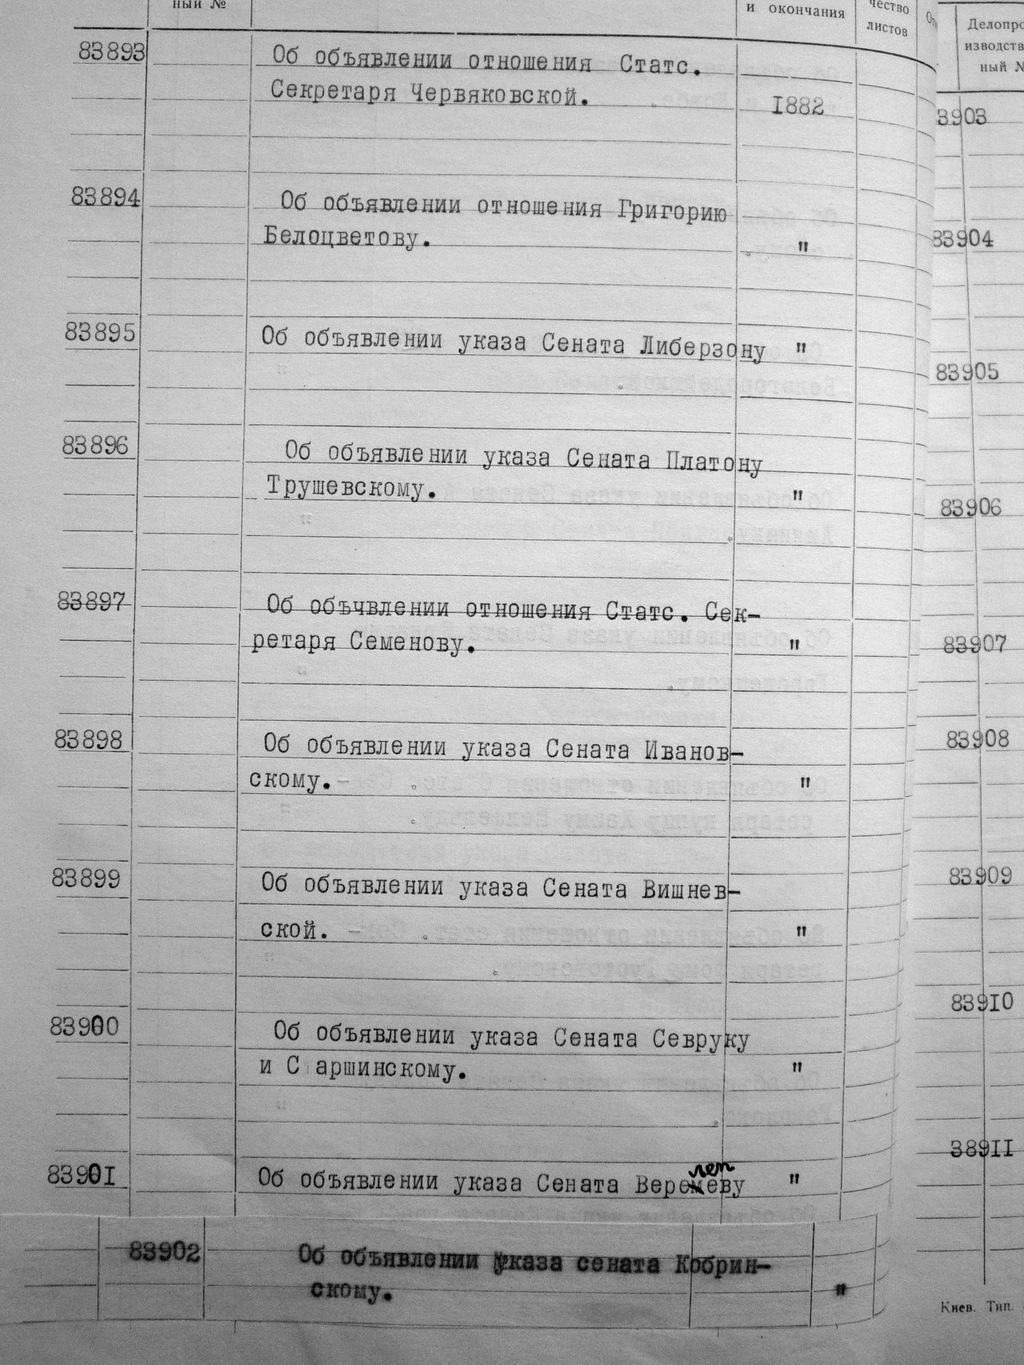 ный №
и окончания
чество
листов
83893
Об объявлении отношения Статс.
Секретаря Червяковской.
1882
83894
Об объявлении отношения Григорию
Белоцветову.
"
83895
Об объявлении указа Сената Либерзону "
83896
Об объявлении указа Сената Платону
Трушевскому.
"
83897
Об объчвлении отношения Статс. Сек-
ретаря Семенову.
"
83898
Об объявлении указа Сената Иванов-
скому.
"
83899
Об объявлении указа Сената Вишнев-
ской.
"
83900
Об объявлении указа Сената Севруку
и С аршинскому.
"
83901
Об объявлении указа Сената "
83902
Об объявлении указа сената Кобрин-
скому.
"
Делопро
изводств
ный №
3903
83904
83905
83906
83907
83908
83909
83910
38911
Киев. Тип.